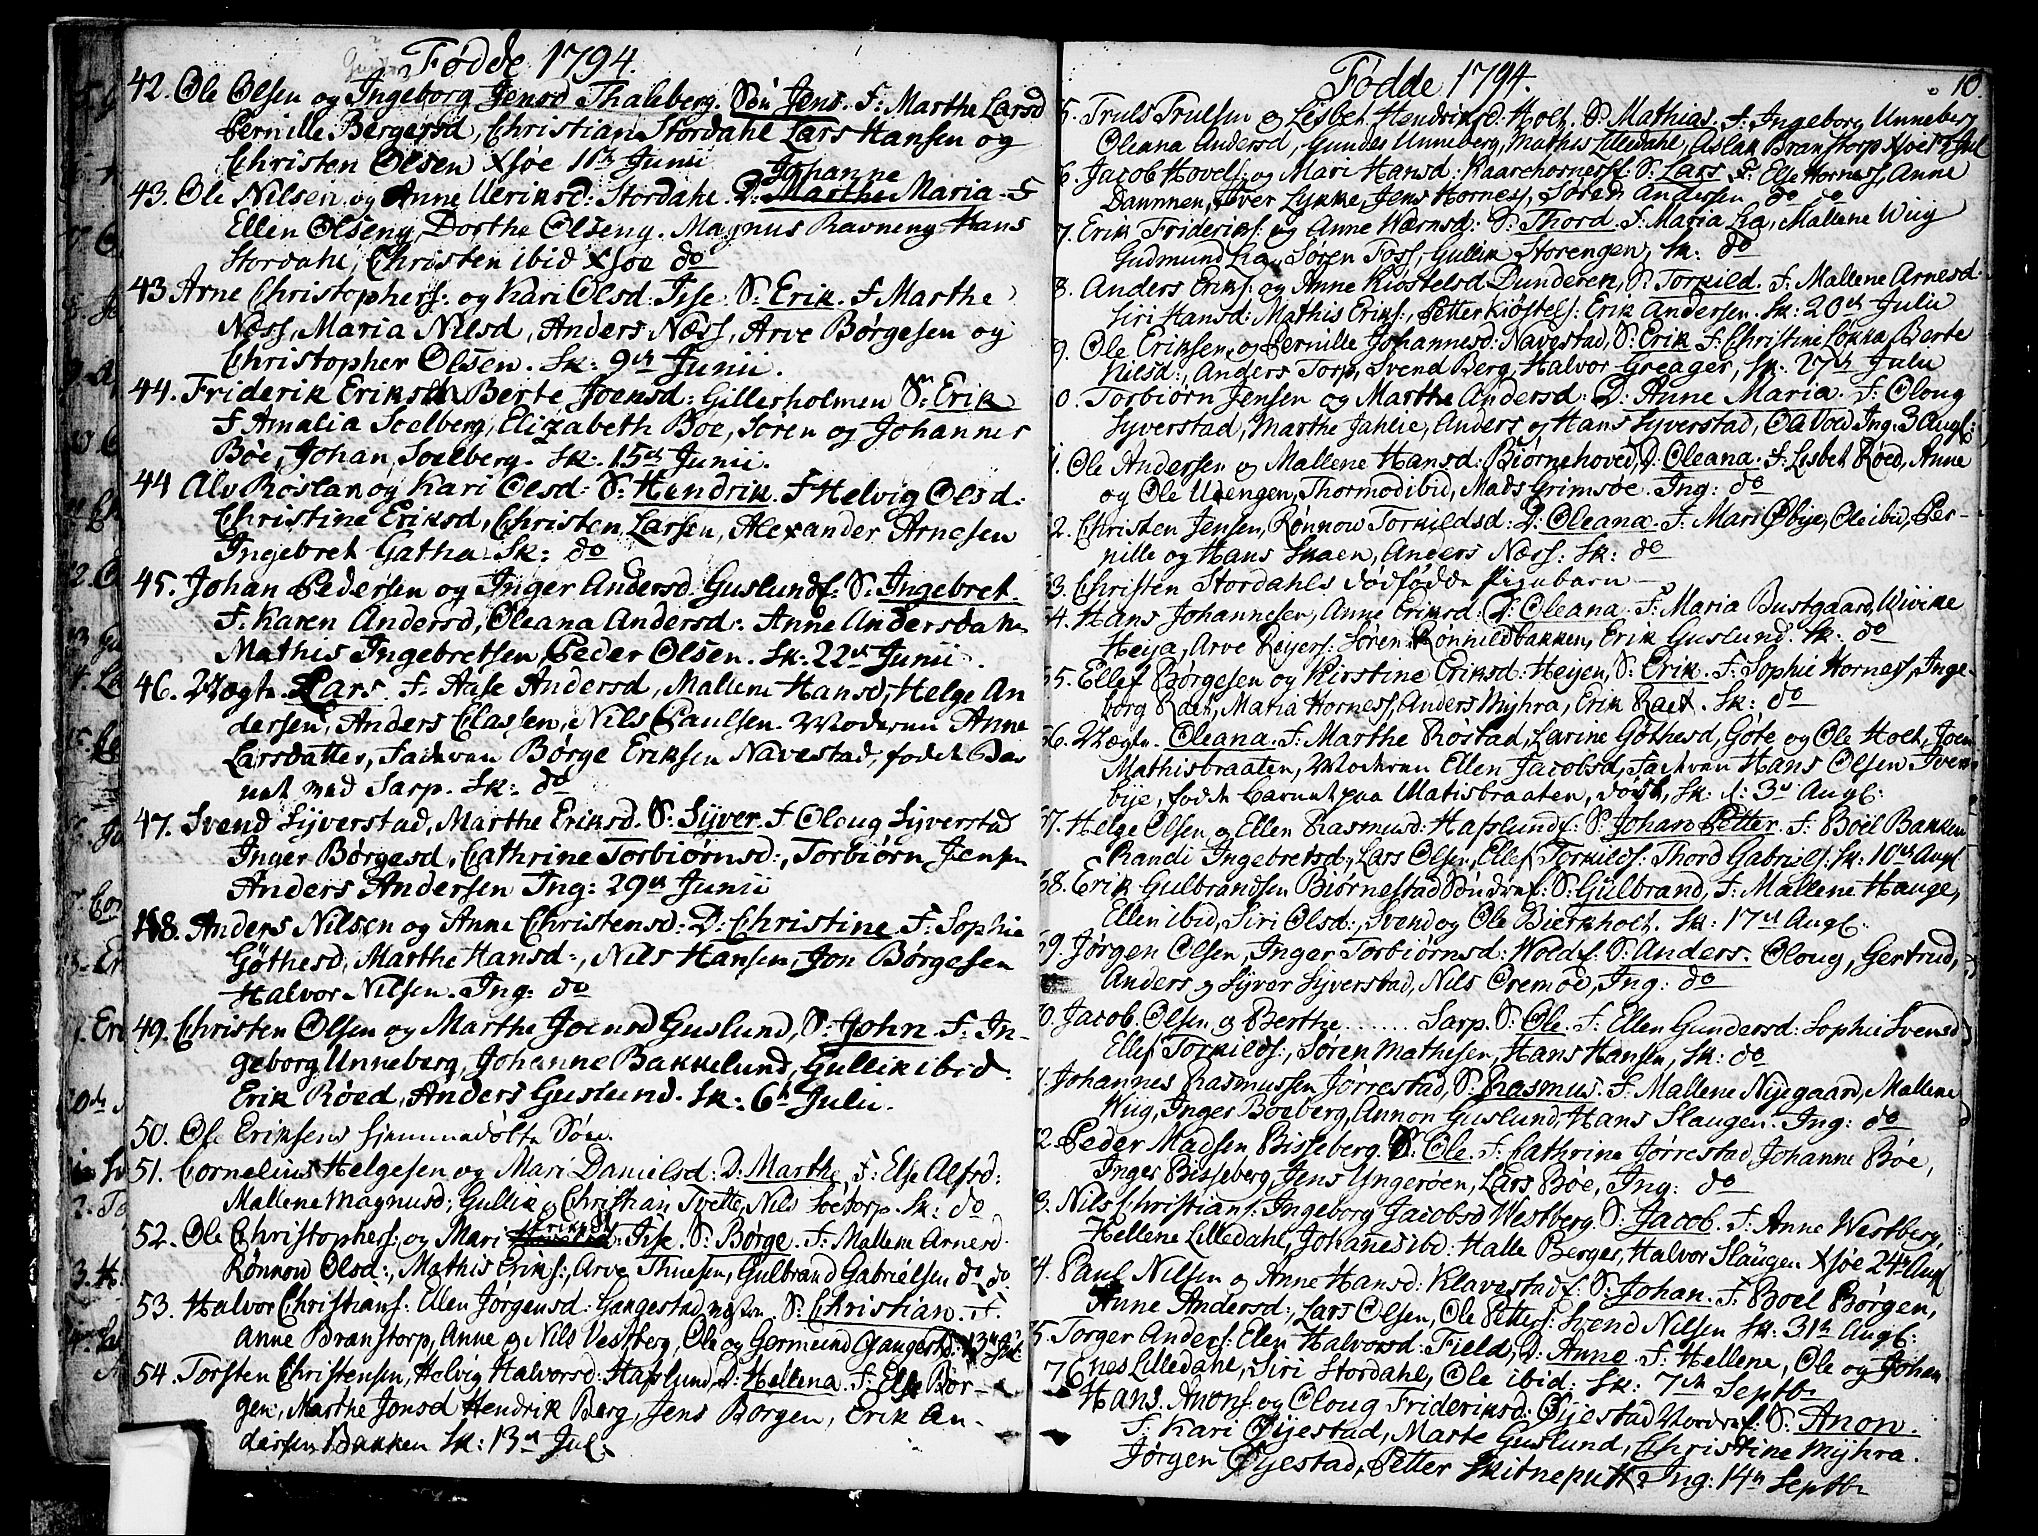 Fødde 1794.
42. Ole Olsen og Ingeborg Jensd Thaleberg. Søn Jens. F: Marthe Larsd
Pernille Bergersd, Christian Stordahl Lars Hansen og
Christen Olsen Xsøe 1ste Junii
Johanne
43. Ole Nilsen og Anne Ulriksd: Stordahl. D: Marthe Maria F
Ellen Olseng, Dorthe Olseng. Magnus Ravneng Hans
Stordahl, Christen ibid Xsøe do
43 Arne Christophers: og Kari Olsd: Tise S: Erik. F Marthe
Næss, Maria Nilsd, Anders Næss, Arve Børgesen og
Christopher Olsen. Sk: 9de Junii.
44. Friderik Eriks Berte Joensd: Gillesholmen S: Erik
F Amalia Soelberg, Elizabeth Boe, Soren og Johannes
Bøe, Johan Soelberg. Sk: 15de Junii.
44 Alv Røslan og Kari Olsd: S: Hendrik. F Helvig Olsd:
Christine Eriksd, Christen Larsen, Alexander Arnesen
Ingebret Gatha Sk: do
45. Johan Pedersen og Inger Andersd Guslund: S: Ingebret.
F: Karen Andersd, Oleana Andersd: Anne Andersd
Mathis Ingebretsen, Peder Olsen. Sk: 22de Junii.
46. Uægte Lars. F: Aase Andersd, Mallene Hansd, Helge An
dersen, Anders Clasen, Nils Paulsen. Moderen Anne
Larsdatter, Faderen Børge Eriksen Navestad, fødde Bar
net ved Sarp. Sk: do
47. Svend Syverstad, Marthe Eriksd. S: Syver F Oloug Syverstad
Inger Børgesd, Cathrine Torbiørnsd:, Torbiørn Jensen
Anders Andersen Ing: 29de Junii
48. Anders Nilsen og Anne Christensd: D: Christine F: Sophie
Gøthesd, Marthe Hansd:, Nils Hansen, Jon Børgesen
Halvor Nilsen. Ing: do
49. Christen Olsen og Marthe Joensd Guslund, S: John F: In-
geborg Unneberg, Johanne Bakkelund, Gullik ibid:
Erik Røed, Anders Guslund. Sk: 6te Julii.
50. Ole Eriksens hiemmedøbte Søn.
51. Cornelius Helgesen og Mari Danielsd: D: Marthe F: Else Alfsd:
Mallene Magnusd, Gullik og Christian Tvette, Nils Soetorp. Sk: do
Eriksd
52. Ole Christophers: og Mari Tise. S: Børge. F: Mallene Arnesd
Rønnow Olsd:, Mathis Eriks:, Arve Thuesen, Gulbrand Gabrielsen do do
53. Halvor Christians: Elen Jorgensd: Gangestad S: Christian. F.
Anne Branstorp, Anne og Nils Vestberg, Ole og Germund Gangestd: 13de Jul
54. Torsten Christensen, Helvig Halvorsd: Hafslund, D: Hellena F: Else Bør-
gen, Marthe Jonsd Hendrik Berg, Jens Borgen, Erik An-
dersen Bakken Sk: 13de Jul:
10.
Fødde 1794.
5. Truls Trulsen og Lisbet Hendriksd: Holt. S: Mathias F: Ingeborg Unneberg
Oleana Andersd, Gunder Unneberg, Mathis Lilledahl, Aslak Branstorp
6. Jacob Hovels: og Mari Hansd: Kaarehorness: S: Lars F: Else Horness, Anne
Dammen, Iver Lykke, Jens Horness, Søren Andersen do do
7. Erik Frideriks: og Anne S: Thord. F: Maria Lia, Mallene Wiig
Gudmund Lia, Søren Foss, Gullik Storengen, Sk: do
8. Anders Eriks: og Anne Kiøstelsd Dunderen, S: Torkild. F: Mallene Arnesd
Siri Hansd: Mathis Eriks:, Petter Kiøstels: Erik Andersen. Sk: 20de Julii
9. Ole Eriksen, og Pernille Johannesd: Navestad, S: Erik F: Christine Løkka, Berte
Nilsd:, Anders Torp, Svend Berg, Halvor Greager, Sk: 27de Julii
0. Torbiørn Jensen og Marthe Andersd: D: Anne Maria. F: Oloug
Syverstad, Marthe Jahlie, Anders og Hans Syverstad, Ing: 3 Augl:
1. Ole Andersen og Mallene Hansd: Biørnehoved, D: Oleana. F: Lisbet Røed, Anne
og Ole Utengen, Thormod ibid, Mads Grimsøe. Ing: do
2. Christen Jensen, Rønnow Torkildsd: D: Oleana. F: Mari Øbye, Ole ibid, Per-
nille og Hans Skaen, Anders Næss: Sk: do
3. Christen Stordahls dødfødde Pigebarn
4. Hans Johannesen, Anne Eriksd: D: Oleana F: Maria Bustgaard, Wiveke
Heija, Arve Reijers: Søren Rønnildbakken, Erik Guslund. Sk: do
65. Ellef Børgesen og Kirstine Eriksd: Heijen, S: Erik. F: Sophie Horness, Inge-
borg Raet, Maria Horness, Anders Myhra, Erik Raet. Sk: do
66. Uægte. Oleana. F: Marthe Røstad, Larine Gøthesd, Gøte og Ole Holt, Joen
Mathisbraaten, Moderen Ellen Jacobsd, Faderen Hans Olsen
bye, fødde Barnet paa Matisbraaten, Sk: d: 3de Augl:
67. Helge Olsen og Ellen Rasmusd: Hafslund: S: Johan Petter. F: Boel Bakken
Randi Ingebretsd:, Lars Olsen, Ellef Torkilds: Thord Gabriels: Sk: 10de Augl
68. Erik Gulbrandsen Biørnestad S: Gulbrand, F: Mallene Hauge,
Ellen ibid, Siri Olsd:, Svend og Ole Bierkholt. Sk: 17de Augl:
69. Jørgen Olsen, Inger Torbiørnsd: Wold: S: Anders. Oloug, Gertrud,
Anders og Syver Syverstad, Nils Oremoe, Ing: do
70. Jacob Olsen og Berthe ...... Sarp. S: Ole. F: Ellen Gundersd: Sophie Svensd
Ellef Torkilds:, Søren Mathesen, Hans Hansen, Sk: do
1. Johannes Rasmussen Jørrestad, S: Rasmus. F: Mallene Nygaard, Mallene
Wiig, Inger Boeberg, Annon Guslund, Hans Slaugen. Ing: do
2. Peder Madsen Bisseberg. S: Ole. F: Cathrine Jørrestad, Johanne Bøe,
Inger Bisseberg, Jens Ungerøen, Lars Bøe, Ing: do
3. Nils Christians: Ingeborg Jacobsd Westberg. S: Jacob. F: Anne Westberg,
Hellene Lilledahl, Johannes ibid: Halle Berger, Halvor Slaugen Xsøe 24de Augl
4. Paul Nilsen og Anne Hansd: Klavestad: S: Johan. F: Boel Børgen,
Anne Andersd:, Lars Olsen, Ole Petters: Svend Nilsen Sk: 31te Augl:
5. Torger Anders: Elen Halvorsd: Field, D: Anne. F: Hellene, Ole og Johan-
nes Lilledahl, Siri Stordahl, Ole ibid: Sk: 7de Septbr
76 Hans Anons: og Oloug Frideriksd: Øyestad S: Anon.
F: Kari Øyestad, Marte Guslund, Christine Myhra.
Jørgen Øyestad, Petter Skitneputt Ing: 14de Septbr